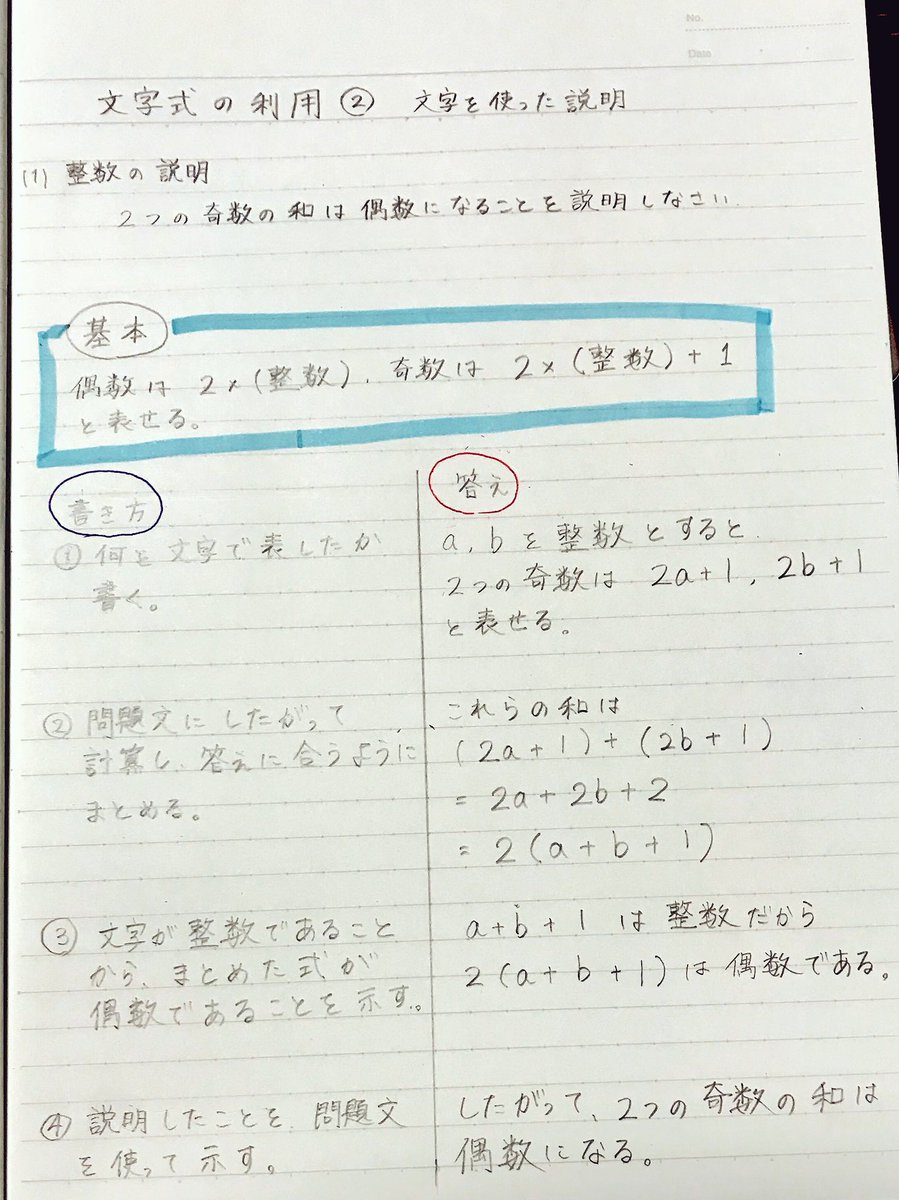 No.
Date
文字式の利用② 文字を使った説明
(1) 整数の説明
2つの奇数の和は偶数になることを説明しなさい
基本
偶数は 2×(整数)、奇数は 2×(整数)+1
と表せる。
書き方
①何を文字で表したか
書く。
②問題文にしたがって
計算し、答えに合うように
まとめる。
③文字が整数であること
から、まとめた式が
偶数であることを示す。
④説明したことを、問題文
を使って示す。
答え
a,bを整数とすると
2つの奇数は 2a+1, 2b+1
と表せる。
これらの和は
(2a+1)+(2b+1)
=2a+2b+2
=2(a+b+1)
a+b+1は整数だから
2(a+b+1)は偶数である。
したがって、2つの奇数の和は
偶数になる。